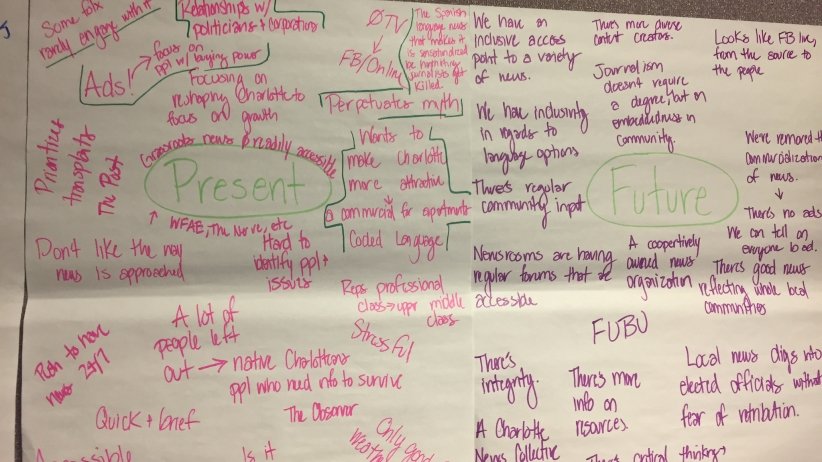 Some folx
rarely engage with it
Relationships w/
politicians + corporations
Ads!
focus on
ppl w/ buying power
Focusing on
reshaping Charlotte to
focus on growth
Grassroots news readily accessible
Present
WFAE, The Nerve, etc
Priorities
transplants
The Post
Don't like the way
news is approached
Hard to
identify ppl +
issues
Ø TV
FB/Online
The Spanish
language news
that makes it
is sensationalized
journalists get
killed.
Perpetuates myth
Wants to
make Charlotte
more attractive
a commercial for apartments
Coded Language
Reps professional
class → uppr middle
class
Stressful
A lot of
people left
out → native Charlotteans
ppl who need info to survive
Push to have
news 24/7
Quick + brief
The Observer
Only good
Accessible
Is it
We have an
inclusive access
point to a variety
of news.
There's more diverse
content creators.
Looks like FB live,
from the source to
the people
Journalism
doesn't require
a degree, but an
embeddedness in
community.
We have inclusivity
in regards to
language options
There's regular
community input
Future
We've removed the
commercialization
of news.
There's no ads
We can tell on
everyone bad.
Newsrooms are having
regular forums that are
accessible
A cooperatively
owned news
organization
There's good news
reflecting whole local
communities
FUBU
There's
integrity.
There's more
info on
resources.
Local news digs into
elected officials without
fear of retribution.
A Charlotte
News Collective
There's critical thinking